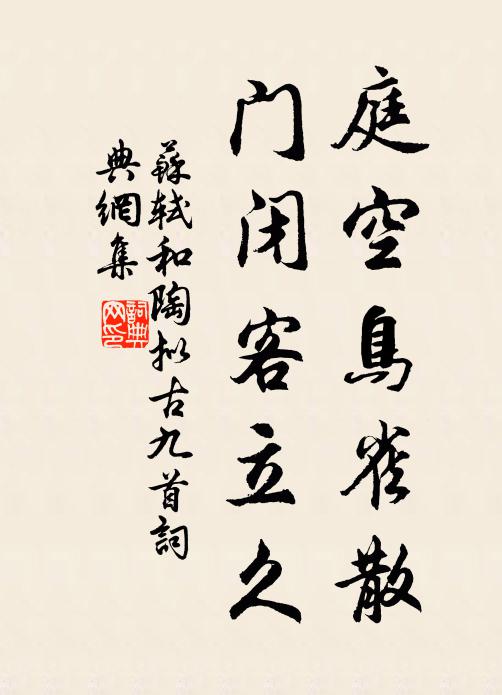 庭空鳥雀散
門闭客立久
蘇軾和陶拟古九首詞
典網集
詞典网印